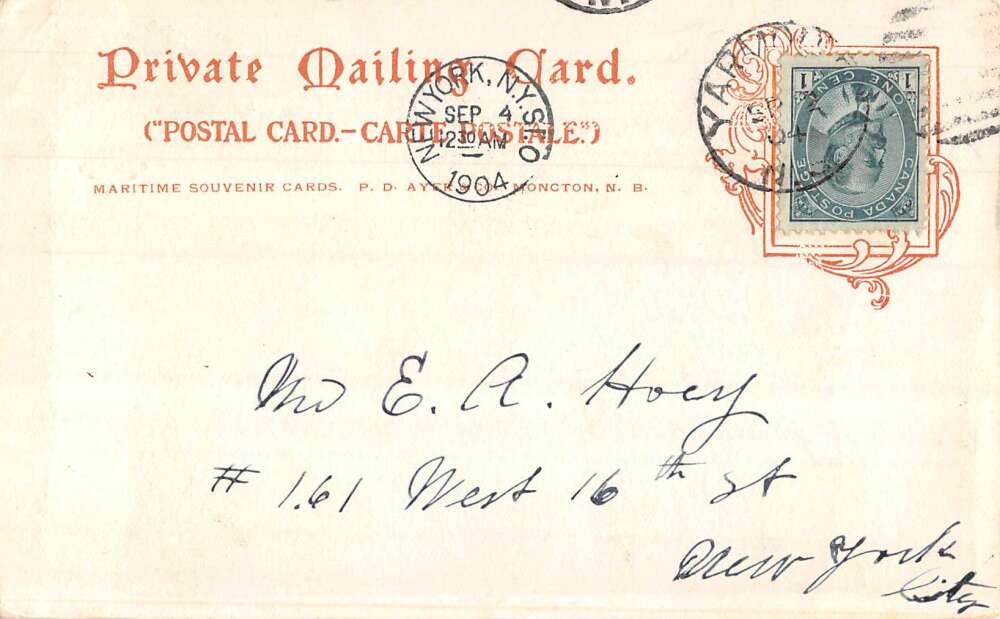 Private Mailing Card.
("POSTAL CARD.–CARTE POSTALE.")
MARITIME SOUVENIR CARDS. P. D. AYER & CO., MONCTON, N. B.
NEW YORK, N.Y. STA. O
SEP 4
12 30 AM
1904
YARMOUTH
04
CANADA POSTAGE
ONE CENT
1 1
E. A. Hoey
# 161 West 16th st
New York
City